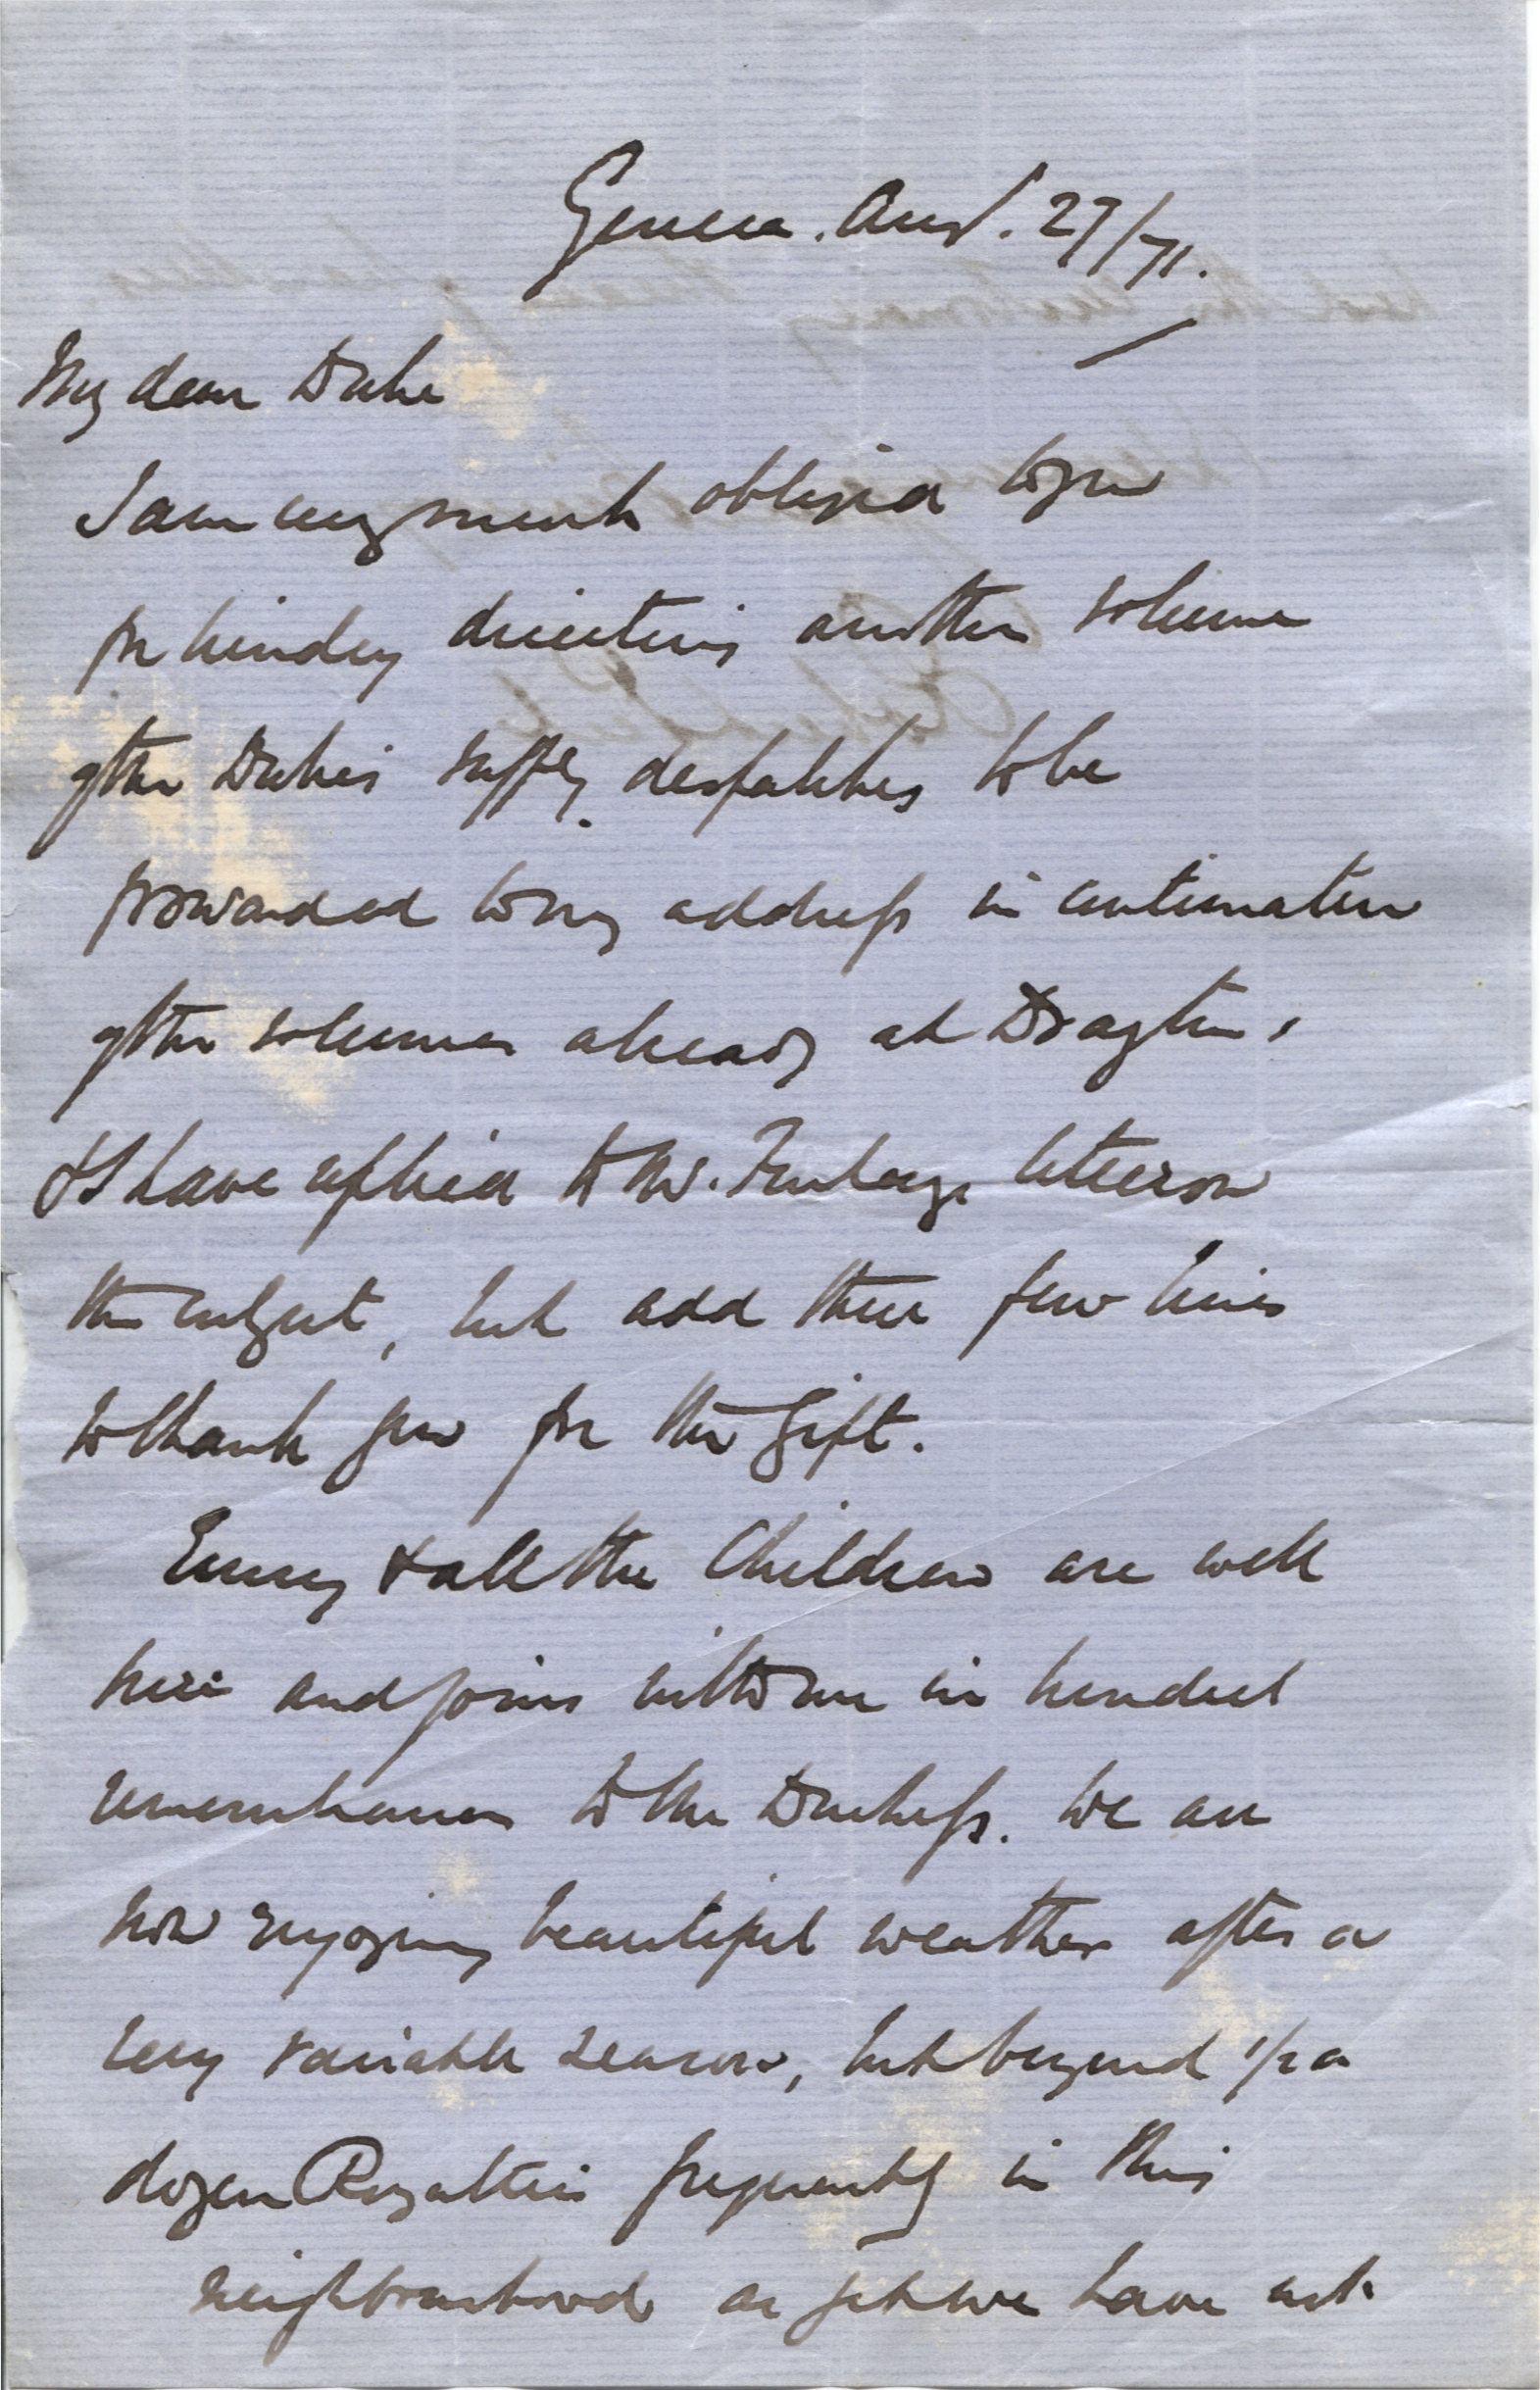 Geneva. Aug. 27/71.
My dear Duke
I am very much obliged to you
for kindly directing another volume
of the Dukes supply. despatches to be
forwarded to my address in continuation
of the volumes already at Drayton.
& I have replied to Mr. letter on
the subject, but add these few lines
to thank you for the gift.
Emily & all the Children are well
here and joins with me in kindest
remembrances to the Duchess. We are
now enjoying beautiful weather after a
very variable season, but beyond 1/2 a
dozen Royalties frequently in this
neighbourhood as yet we have not